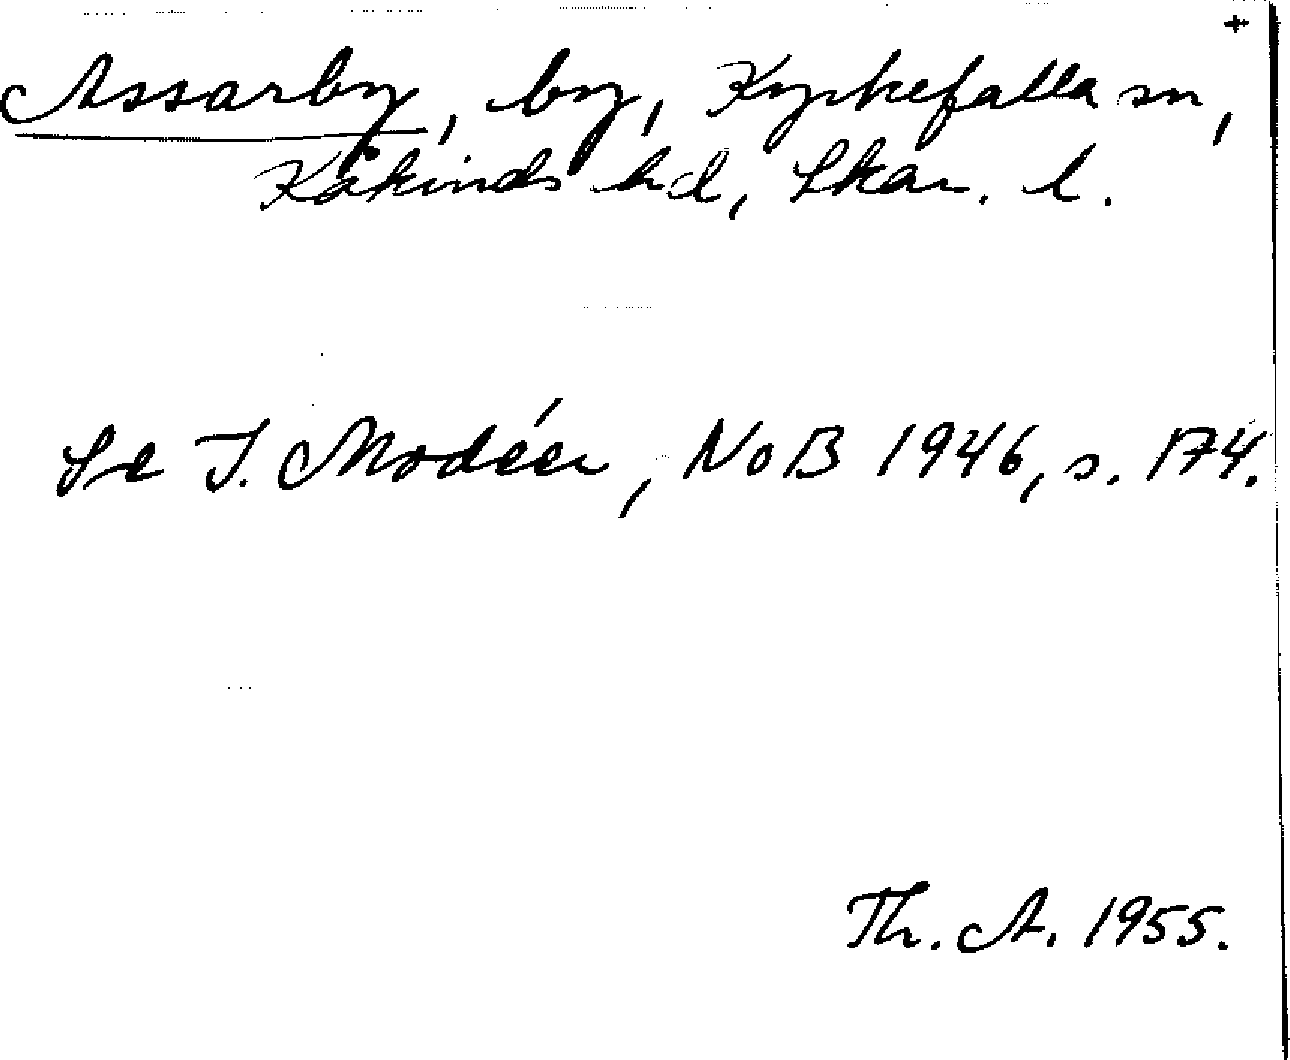 +
Assarby, by, Kyrkefalla sn,
Kåkinds hd, Skar. l.
Se I. Modéer, NoB 1946, s. 174.
Th. A. 1955.